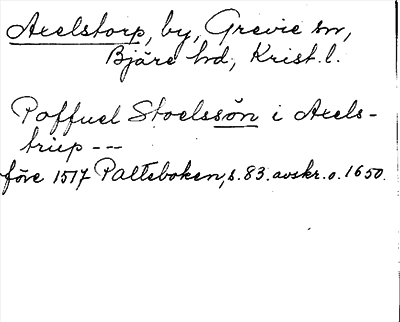 Axelstorp, by, Grevie sn,
Bjäre hd, Krist. l.
Poffuel Stoelssøn i Axels-
trup ---
före 1517 Palteboken, s. 83. avskr. o. 1650.